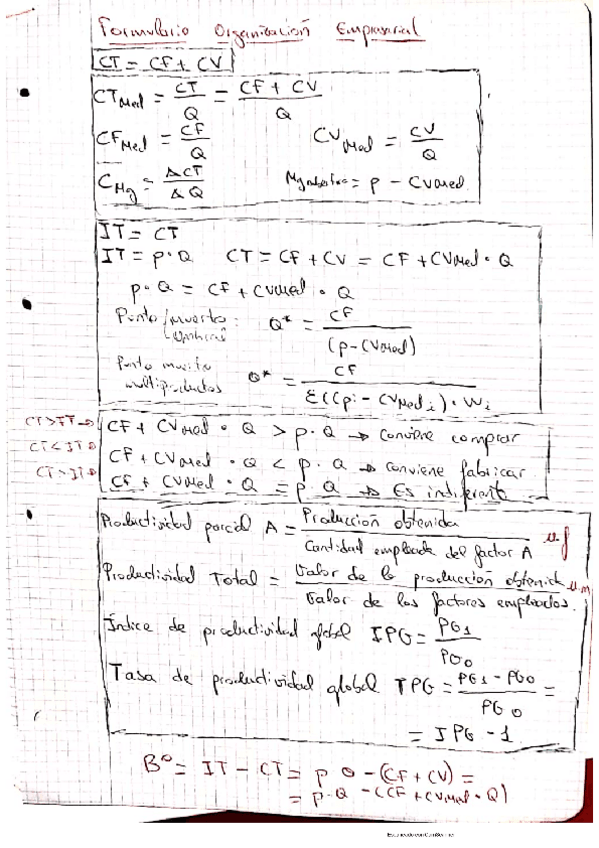 Formulario Organización Empresarial
CT = CF + CV
CTMed = CT/Q = CF + CV/Q
CFMed = CF/Q CVMed = CV/Q
CMg = ΔCT/ΔQ = p - CVMed
IT = CT
IT = p·Q CT = CF + CV = CF + CVMed · Q
p·Q = CF + CVMed · Q
Punto/muerto : Q* = CF/(p-CVMed)
Punto muerto
multiproductos Q* = CF/Σ((pi - CVMedi)·Wi
CT>IT → CF + CVMed · Q > p·Q → Conviene comprar
CT<IT → CF + CVMed · Q < p·Q → conviene fabricar
CT>IT → CF + CVMed · Q = p·Q → Es indiferente
Productividad parcial A = Producción obtenida/Cantidad empleada del factor A u.f
Productividad Total = Valor de la producción obtenida/Valor de los factores empleados. u.m
Índice de productividad global IPG = PG1/PG0
Tasa de productividad global TPG = PG1 - PG0/PG0 =
= IPG - 1
Bº = IT - CT = p·Q - (CF + CV) =
= p·Q - (CF + CVMed · Q)
Escaneado con CamScanner